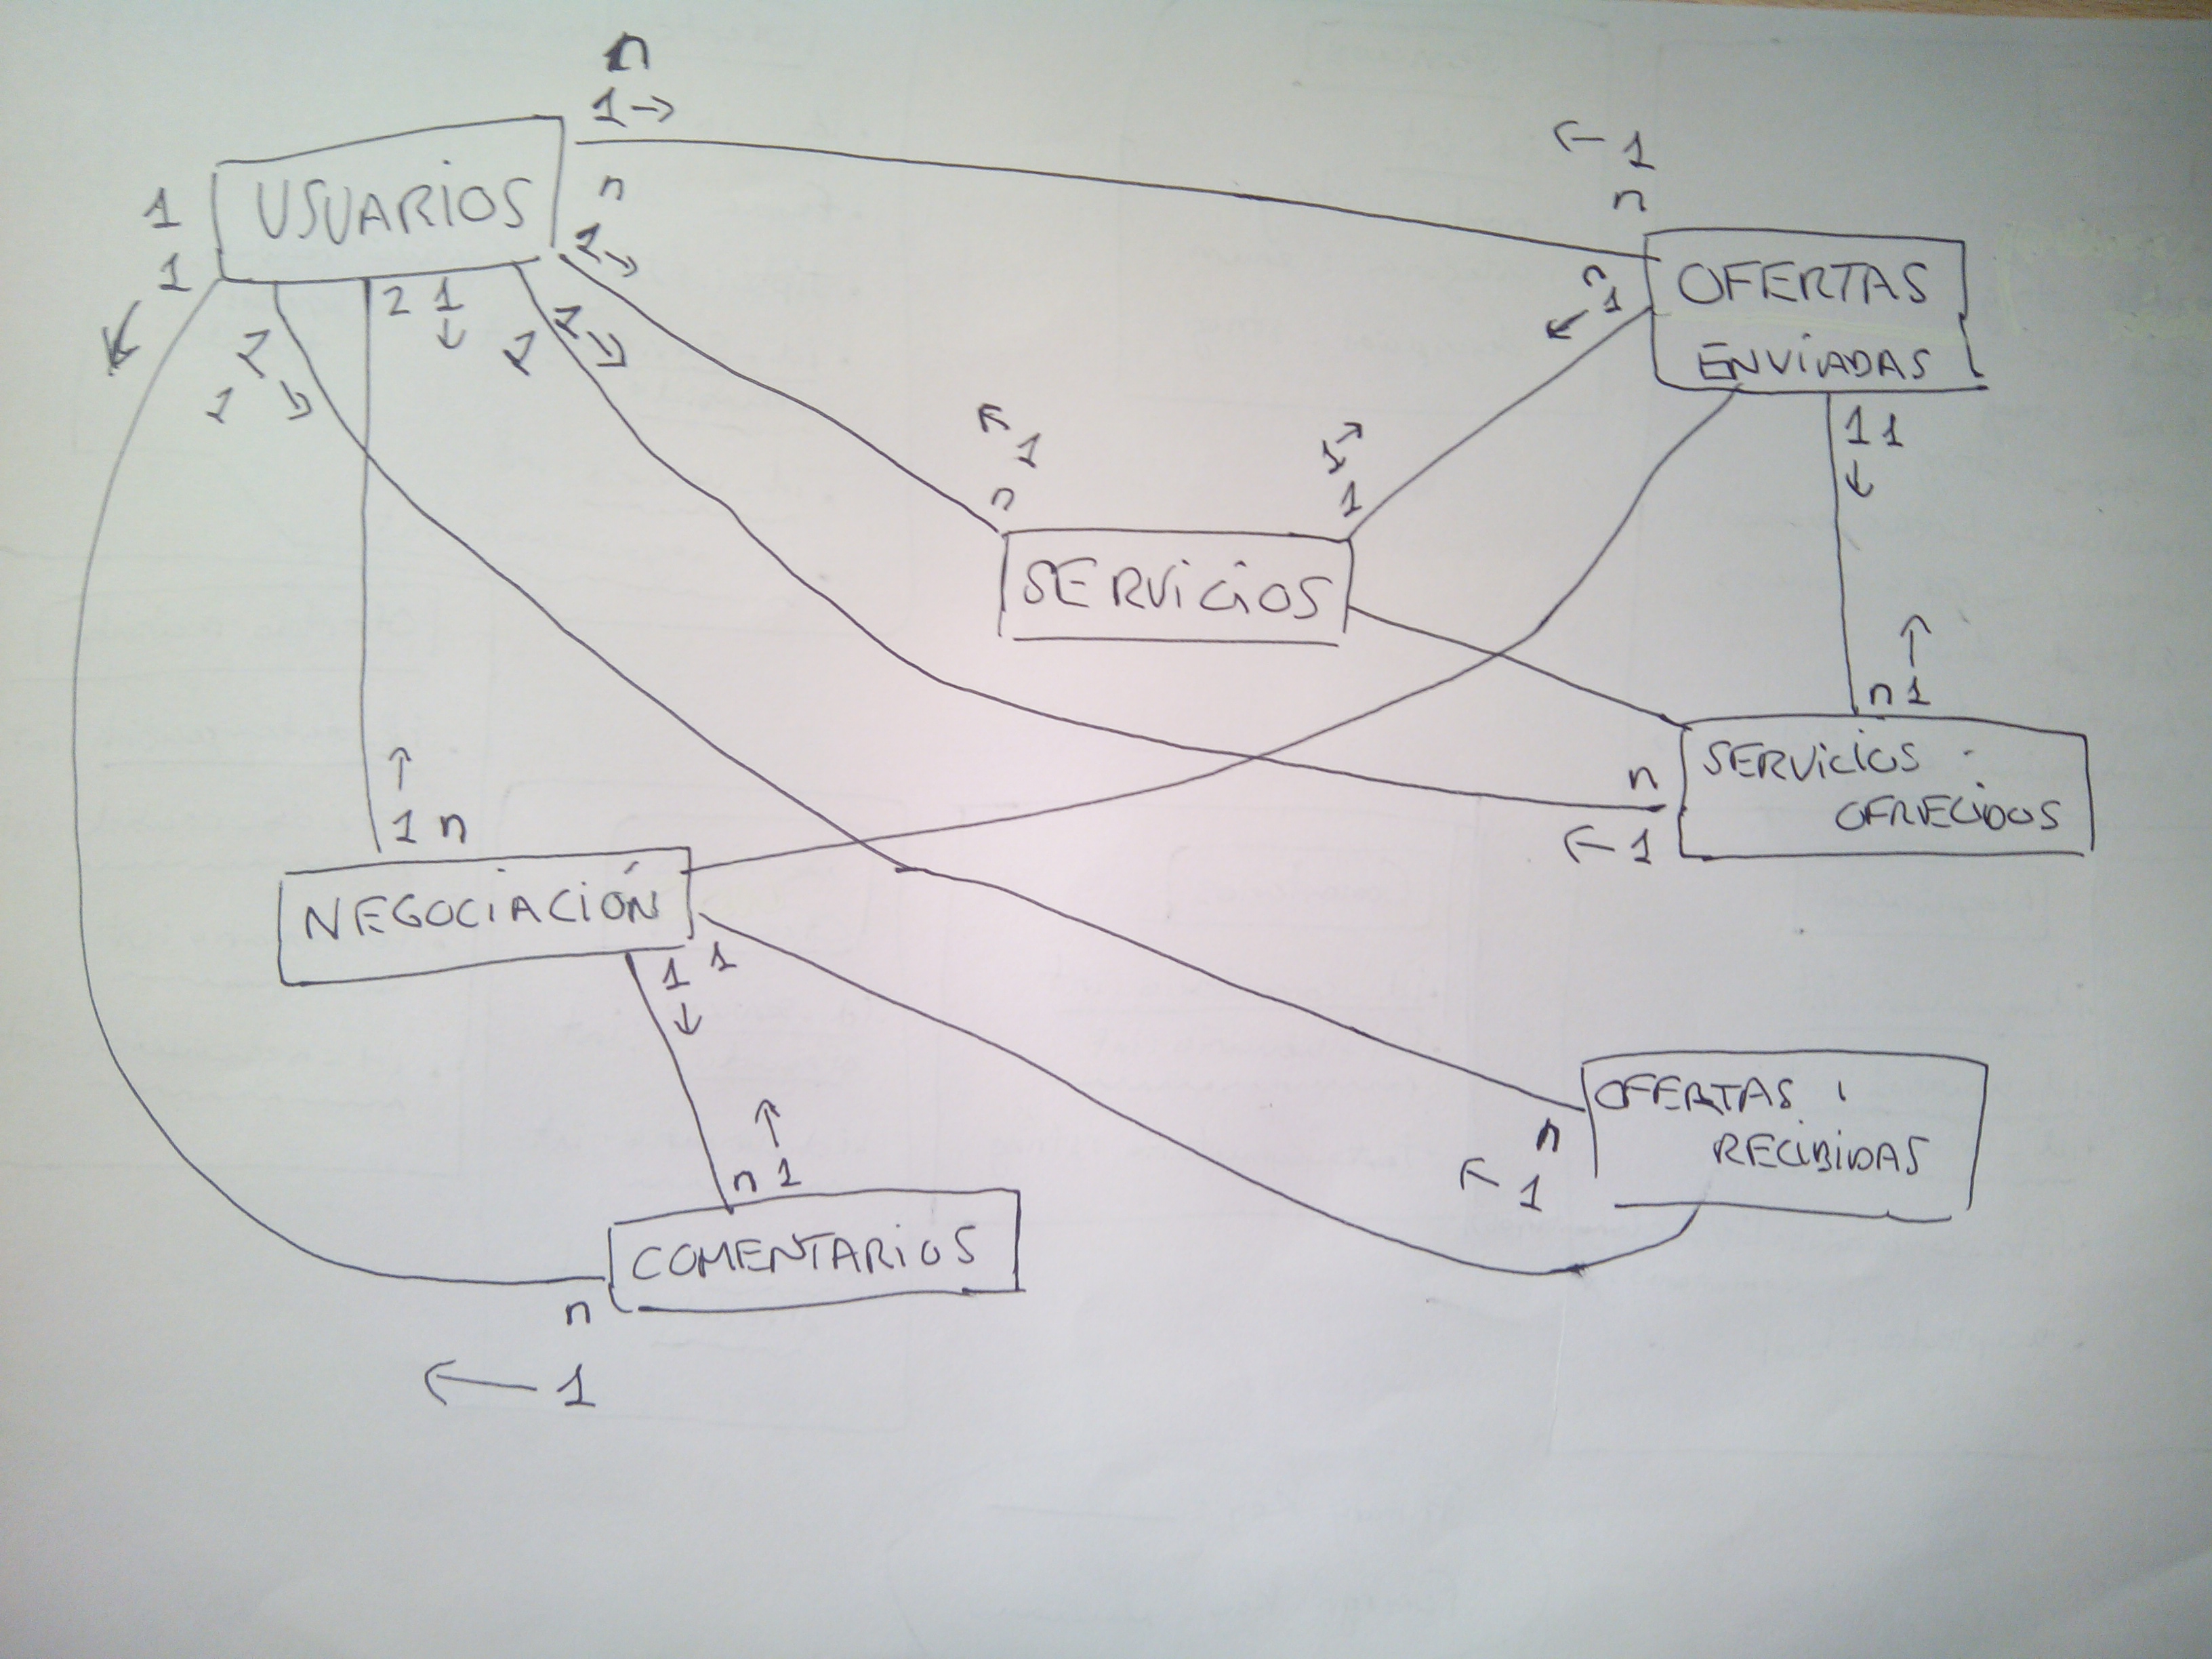 n
1→
←1
n
USUARIOS
n
1→
1
1
↙
2 1
↓
1
→
1
1
→
1
n
1
↙
OFERTAS
ENVIADAS
1 1
↓
↖ 1
n
1↗
1
SERVICIOS
↑
n 1
SERVICIOS
OFRECIDOS
n
←1
↑
1 n
NEGOCIACIÓN
1 1
↓
OFERTAS
RECIBIDAS
n
↖ 1
↑
n 1
COMENTARIOS
n
← 1